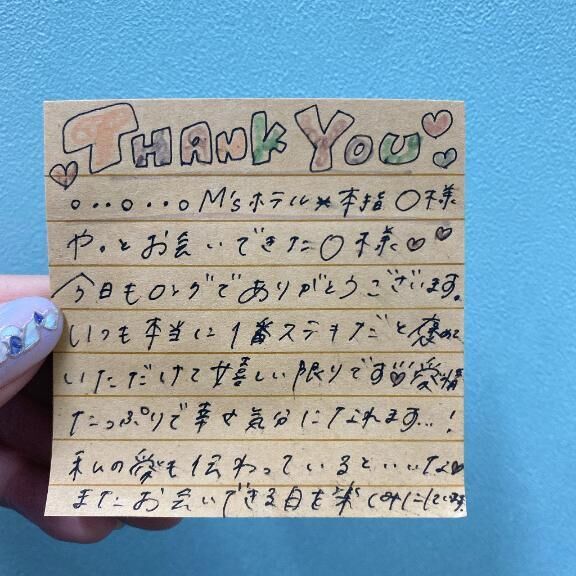 THANK YOU
○··○··○ M'sホテル 本指○様
やっとお会いできた○様♡♡
今日もロングでありがとうございます。
いつも本当に1番ステキだと褒めて
いただけて嬉しい限りです♡愛情
たっぷりで幸せ気分になれます…!
私の愛も伝わっているといいな♡
またお会いできる日を楽しみにしています。